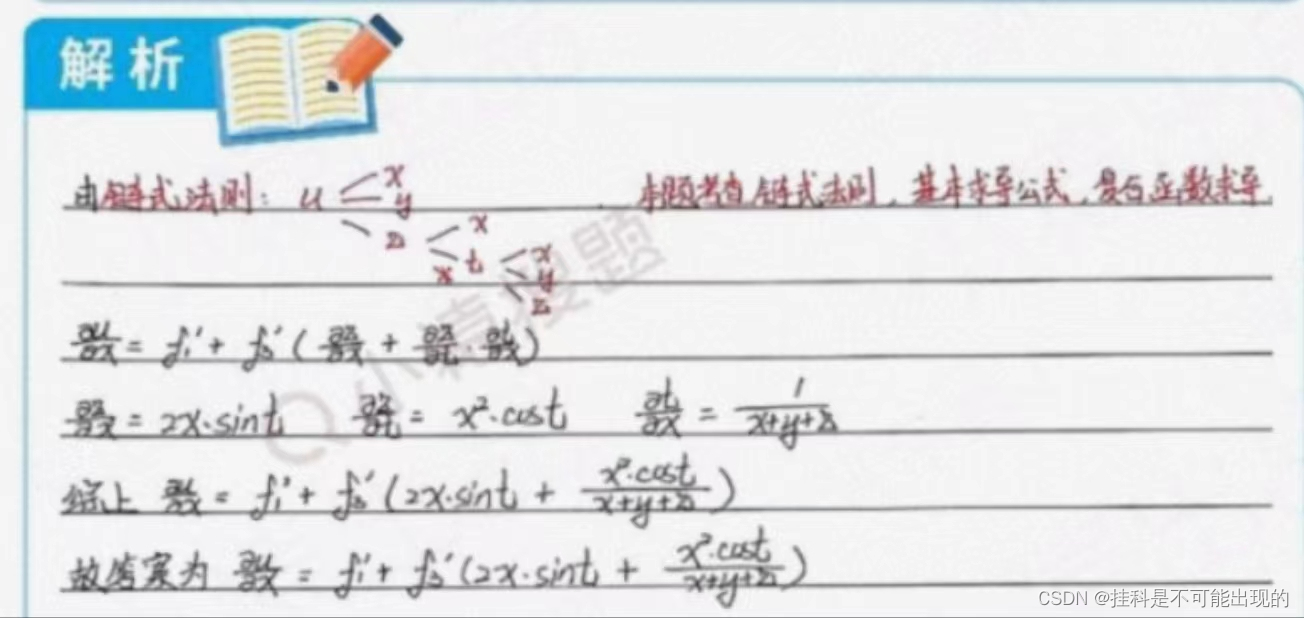 解析
由链式法则: u x 本题考查链式法则, 基本求导公式, 复合函数求导
y
z x
x t x
y
z
∂u/∂x = f₁′ + f₃′ ( ∂z/∂x + ∂z/∂t · ∂t/∂x )
∂z/∂x = 2x·sint ∂z/∂t = x²·cost ∂t/∂x = 1/(x+y+z)
综上 ∂u/∂x = f₁′ + f₃′ (2x·sint + x²·cost/(x+y+z))
故答案为 ∂u/∂x = f₁′ + f₃′ (2x·sint + x²·cost/(x+y+z))
小猿搜题
CSDN @挂科是不可能出现的